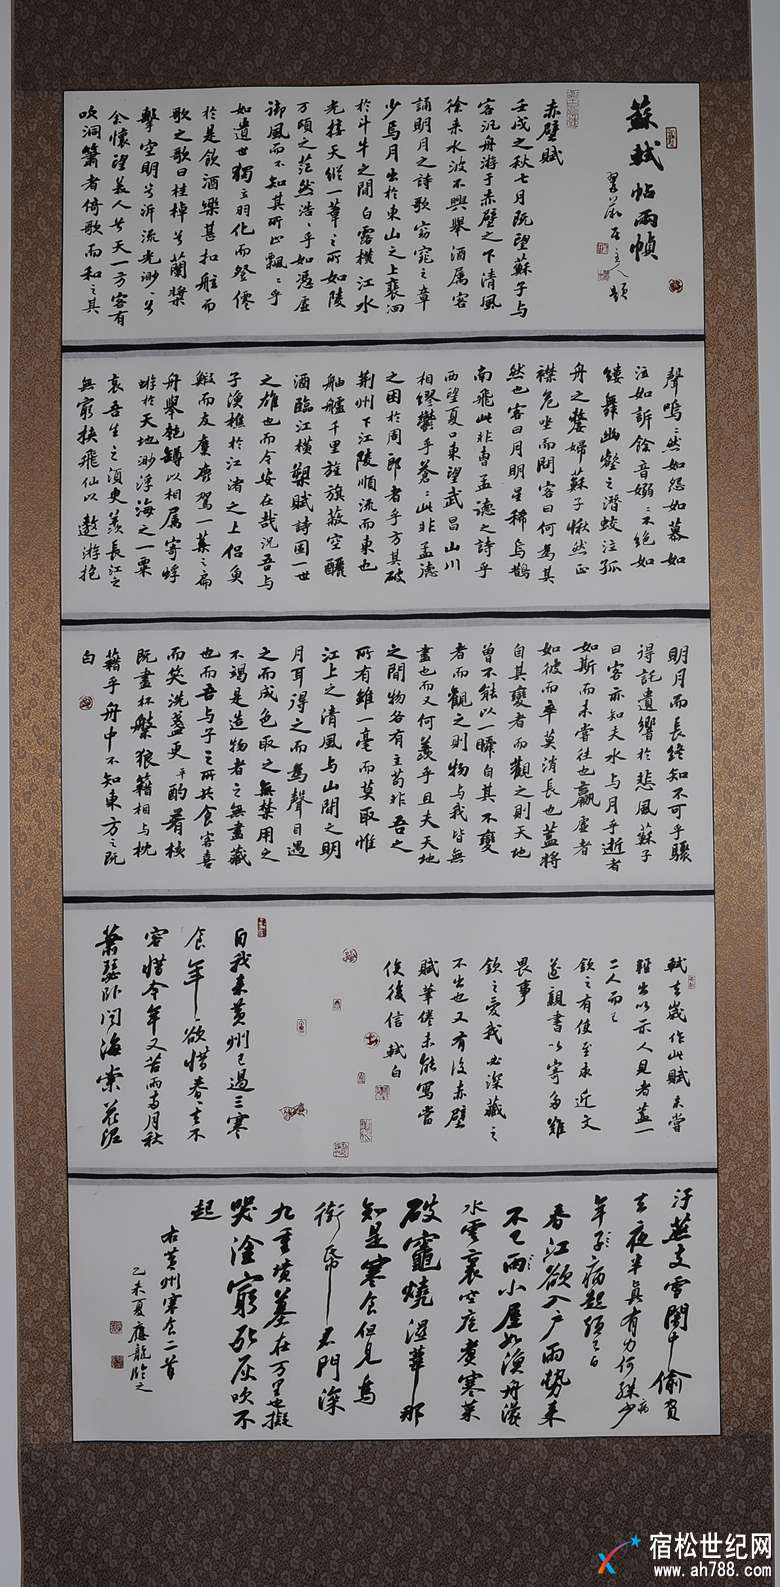 蘇軾帖兩幀
居主人題
赤壁賦
壬戌之秋七月既望蘇子与
客汎舟游于赤壁之下清風
徐来水波不興舉酒属客
誦明月之詩歌窈窕之章
少焉月出於東山之上裴回
於斗牛之間白露横江水
光接天縱一葦之所如陵
万頃之茫然浩〻乎如憑虚
御風而不知其所止飄〻乎
如遺世獨立羽化而登僊
於是飲酒樂甚扣舷而
歌之歌曰桂棹兮蘭槳
擊空明兮泝流光渺〻兮
余懷望美人兮天一方客有
吹洞簫者倚歌而和之其
聲嗚〻然如怨如慕如
泣如訴餘音嫋〻不絶如
縷舞幽壑之潛蛟泣孤
舟之嫠婦蘇子愀然正
襟危坐而問客曰何為其
然也客曰月明星稀烏鵲
南飛此非曹孟德之詩乎
西望夏口東望武昌山川
相繆鬱乎蒼〻此非孟德
之困於周郎者乎方其破
荆州下江陵順流而東也
舳艫千里旌旗蔽空釃
酒臨江横槊賦詩固一世
之雄也而今安在哉況吾与
子漁樵於江渚之上侣魚
鰕而友麋鹿駕一葉之扁
舟舉匏罇以相属寄蜉
蝣於天地渺浮海之一粟
哀吾生之須臾羨長江之
無窮挟飛仙以遨游抱
明月而長終知不可乎驟
得託遺響於悲風蘇子
曰客亦知夫水与月乎逝者
如斯而未嘗往也贏虚者
如彼而卒莫消長也蓋将
自其變者而觀之則天地
曾不能以一瞬自其不變
者而觀之則物与我皆無
盡也而又何羨乎且夫天地
之間物各有主苟非吾之
所有雖一毫而莫取惟
江上之清風与山間之明
月耳得之而為聲目遇
之而成色取之無禁用之
不竭是造物者之無盡藏
也而吾与子之所共食客喜
而笑洗盞更酌肴核
既盡杯槃狼籍相与枕
藉乎舟中不知東方之既
白
軾去歲作此賦未嘗
輕出以示人見者蓋一
二人而已
欽之有使至求近文
遂親書以寄多難
畏事
欽之愛我必深藏之
不出也又有後赤壁
賦筆倦未能寫當
俟後信軾白
自我来黄州已過三寒
食年〻欲惜春春去不
容惜今年又苦雨兩月秋
蕭瑟卧聞海棠花泥
汙燕支雪闇中偷負
去夜半真有力何殊少
年子病起頭已白
春江欲入户雨勢来
不已雨小屋如漁舟濛〻
水雲裏空庖煮寒菜
破竈燒濕葦那
知是寒食但見烏
銜帋君門深
九重墳墓在万里也擬
哭塗窮死灰吹不
起
右黄州寒食二首
乙未夏應龍臨之
宿松世纪网
www.ah788.com